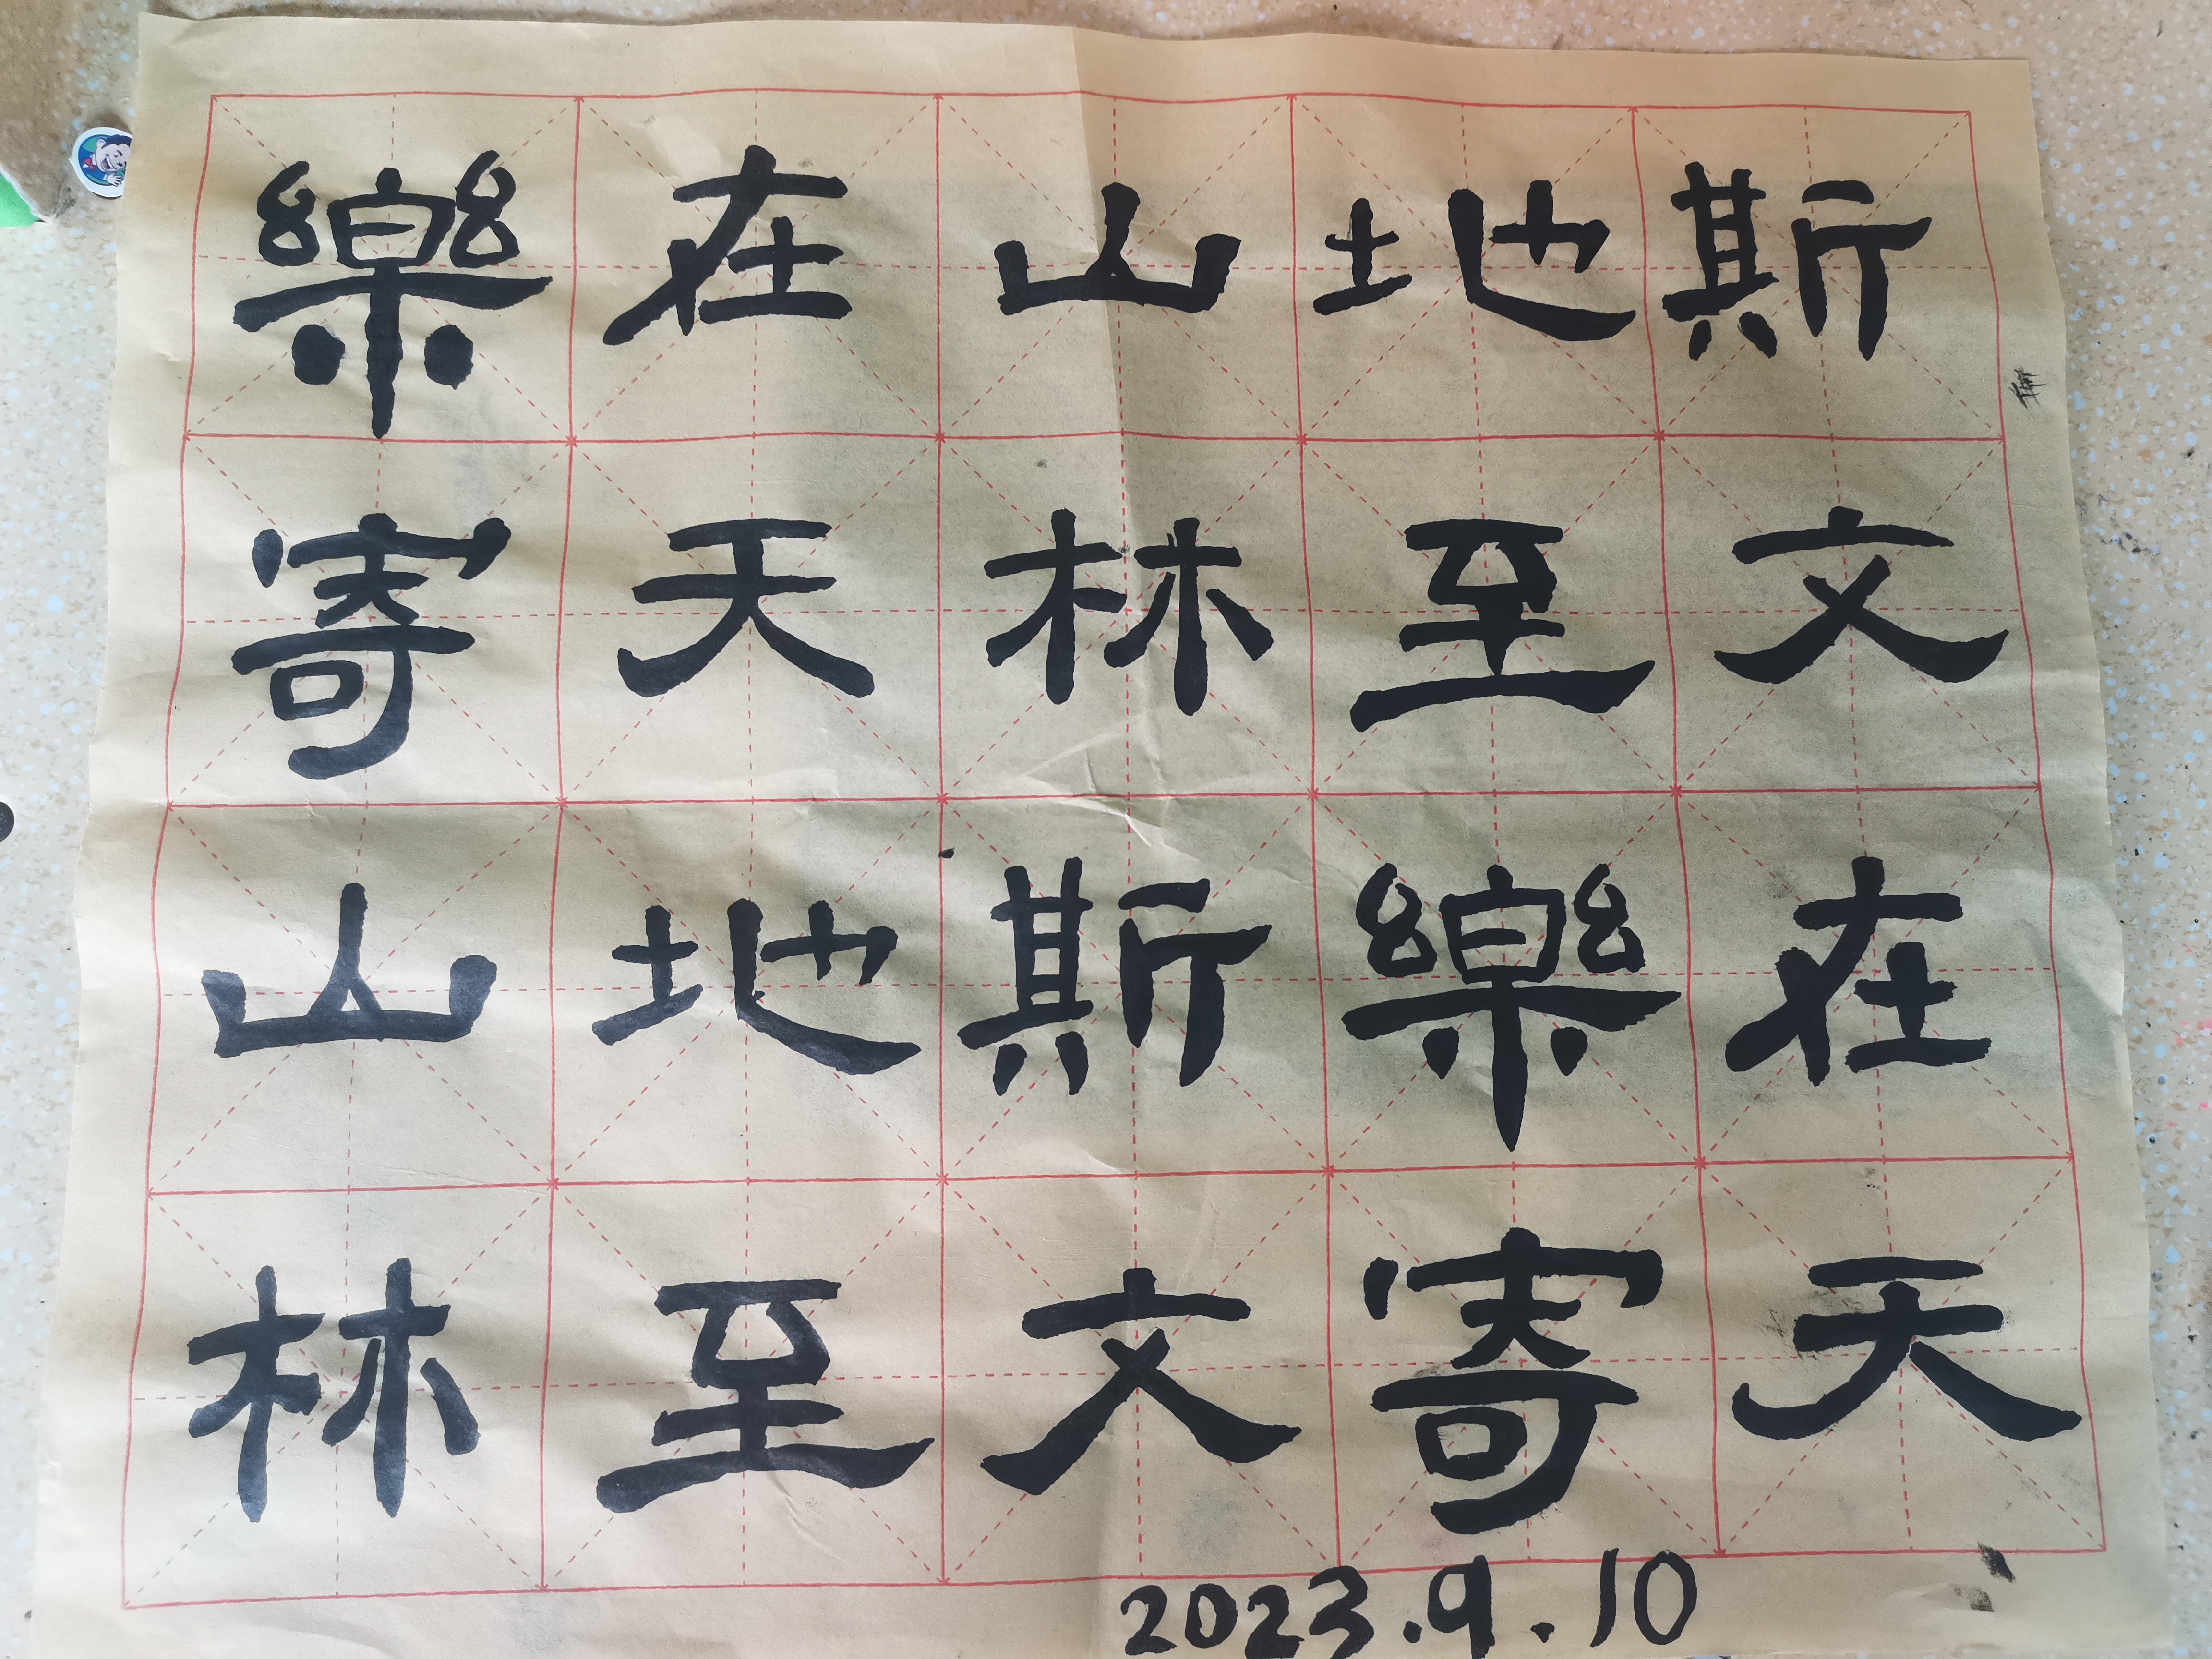 斯文在天
地至樂寄
山林斯文
在天地至
樂寄山林
2023.9.10